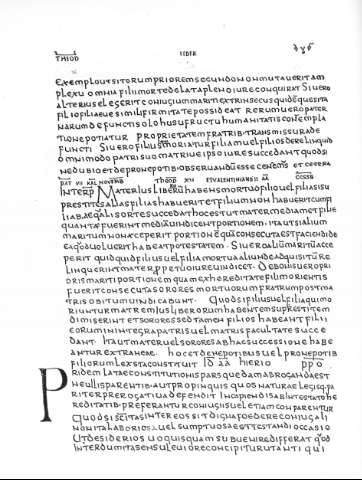 THIOD LIBER
EXEMPLO UT SI TORUM PRIOREM SECUNDO NON MUTAUERIT AM
PLEXU OMNIA FILII MORTE DELATA PLENO IURE CONQUIRAT SI UERO
ALTERIUS ELEGERIT CONIUGIUM MARITI EXTRINSECUS QUIDEM QUAESITA
FILIO FILIAEUE SIMILI FIRMITATE POSSIDEAT RERUM UERO PATER
NARUM DEFUNCTI SOLO USUFRUCTU HUMANITATIS CONTEMPLA
TIONE POTIATUR PROPRIETATEM FRATRIB TRANSMISSURA DE
FUNCTI SI UERO FILIUS MORIATUR FILIAMUE FILIOS DERELINQUENS
OMNIMODO PATRI SUO MATRIUE IPSO IURE SUCCEDANT QUOD SI
NE DUBIO ET DE PRONEPOTIB OBSERUANDUM ESSE CENSEMUS ET CETERA
DAT VII KAL NOUEMB THEOD XII ET VALENTINIANO II AA CONSS
INTERP MATER LIUS LIBERUM HABENS MORTUO FILIO UEL FILIA SI SU
PRESTITES ALIAS FILIAS HABUERIT ET FILIUM NON HABUERIT CUM FI
LIABUS AEQUALI SORTE SUCCEDAT HOC EST UT MATER MEDIAM ET FILIAE
QUANTAE FUERINT MEDIAM UINDICENT PORTIONEM ITA UT SI ALIUM
MARITUM NON ACCEPERIT PORTIONE QUA CONSECUTA EST FACIENDI DE
EA QUOD UOLUERIT HABEAT POTESTATEM SI UERO ALIUM MARITUM ACCE
PERIT QUIDQUID FILIUS UEL FILIA MORTUA ALIUNDE ADQUISITUM RE
LINQUERINT MATER PERPETUO IURE UINDICET DE BONIS UERO PRI
ORIS MARITI PORTIONEM QUAM EX HEREDITATE FILII MORIENTIS
FUERIT CONSECUTA SORORES MORTUORUM FRATRUM POST MA
TRIS OBITUM UINDICABUNT QUOD SI FILIUS UEL FILIA QUI MO
RIUNTUR MATREM IUS LIBERORUM HABENTEM SUPRESTITEM
DIMISERINT ET SORORES SED TAMEN FILIOS HABEANT FILII
EORUM IN INTEGRA PATRIS UEL MATRIS FACULTATE SUCCE
DANT HAUT MATER UEL SORORES AB HAC SUCCESSIONE HABE
ANTUR EXTRANEAE HOC ET DE NEPOTIBUS UEL PRONEPOTIB
FILIORUM LEX ISTA CONSTITUIT ID AA HIERIO PPO
PRIDEM LATAE CONSTITUTIONIS PARS QUAEDAM ABROGANDA EST
NE ULLIS PARENTIB AUT PROPINQUIS QUOS NATURAE LEGISQ PA
RITER PREROGATIUA DEFENDIT INCIPIENDIS AB INTESTATO HE
REDITATIB PREFERANTUR CONIUGIS UEL ETIAM CONPARENTUR
QUOD SI SCITAS INTER EOS SIT DIGNA FOEDERE CONIUGALI
NON ITA LABORIOSA UEL SUMPTUOSA EST TESTANDI OCCASIO
UT DESIDERIO SUO QUISQUAM SUBUENIRE DIFFERAT QUOD
INTERDUM ITA SENSU LEUIORE CONCIPITUR UT ANTIQUI